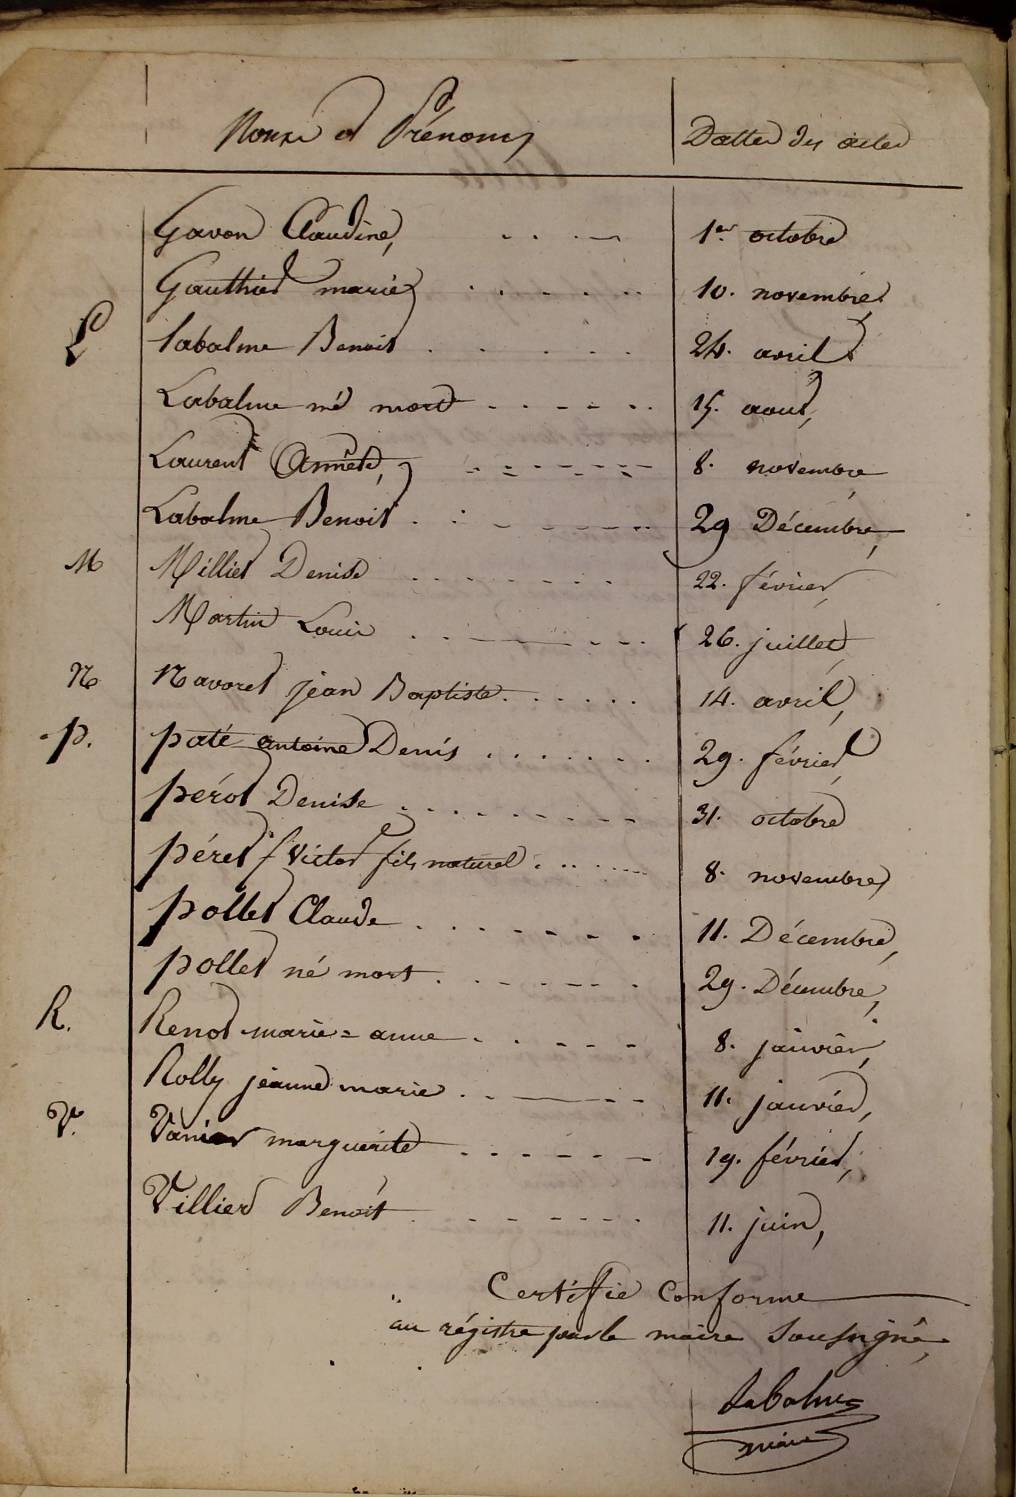 Noms et Prénoms Dattes des actes
Gavon Claudine, 1er octobre
Gauthier marie 10. novembre,
L Labalme Benoit 24. avril
Labalme né mort 15. aout,
Laurent Annete, 8. novembre
Labalme Benoit 29 Décembre,
M Millier Denise 22. février,
Martin Louis 26. juillet,
N Navoret jean Baptiste 14. avril,
p. paté antoine Denis 29. février,
pérot Denise 31. octobre
péret Victor fils naturel 8. novembre,
pollet Claude 11. Décembre,
pollet né mort 29. Décembre,
R. Renot marie = anne 8. janvier,
Rolly jeanne marie 11. janvier,
V. Vanier marguerite 19. février,
Villier Benoit 11. juin,
Certifie Conforme
au régistre par le maire Sousigné,
Labalme
maire